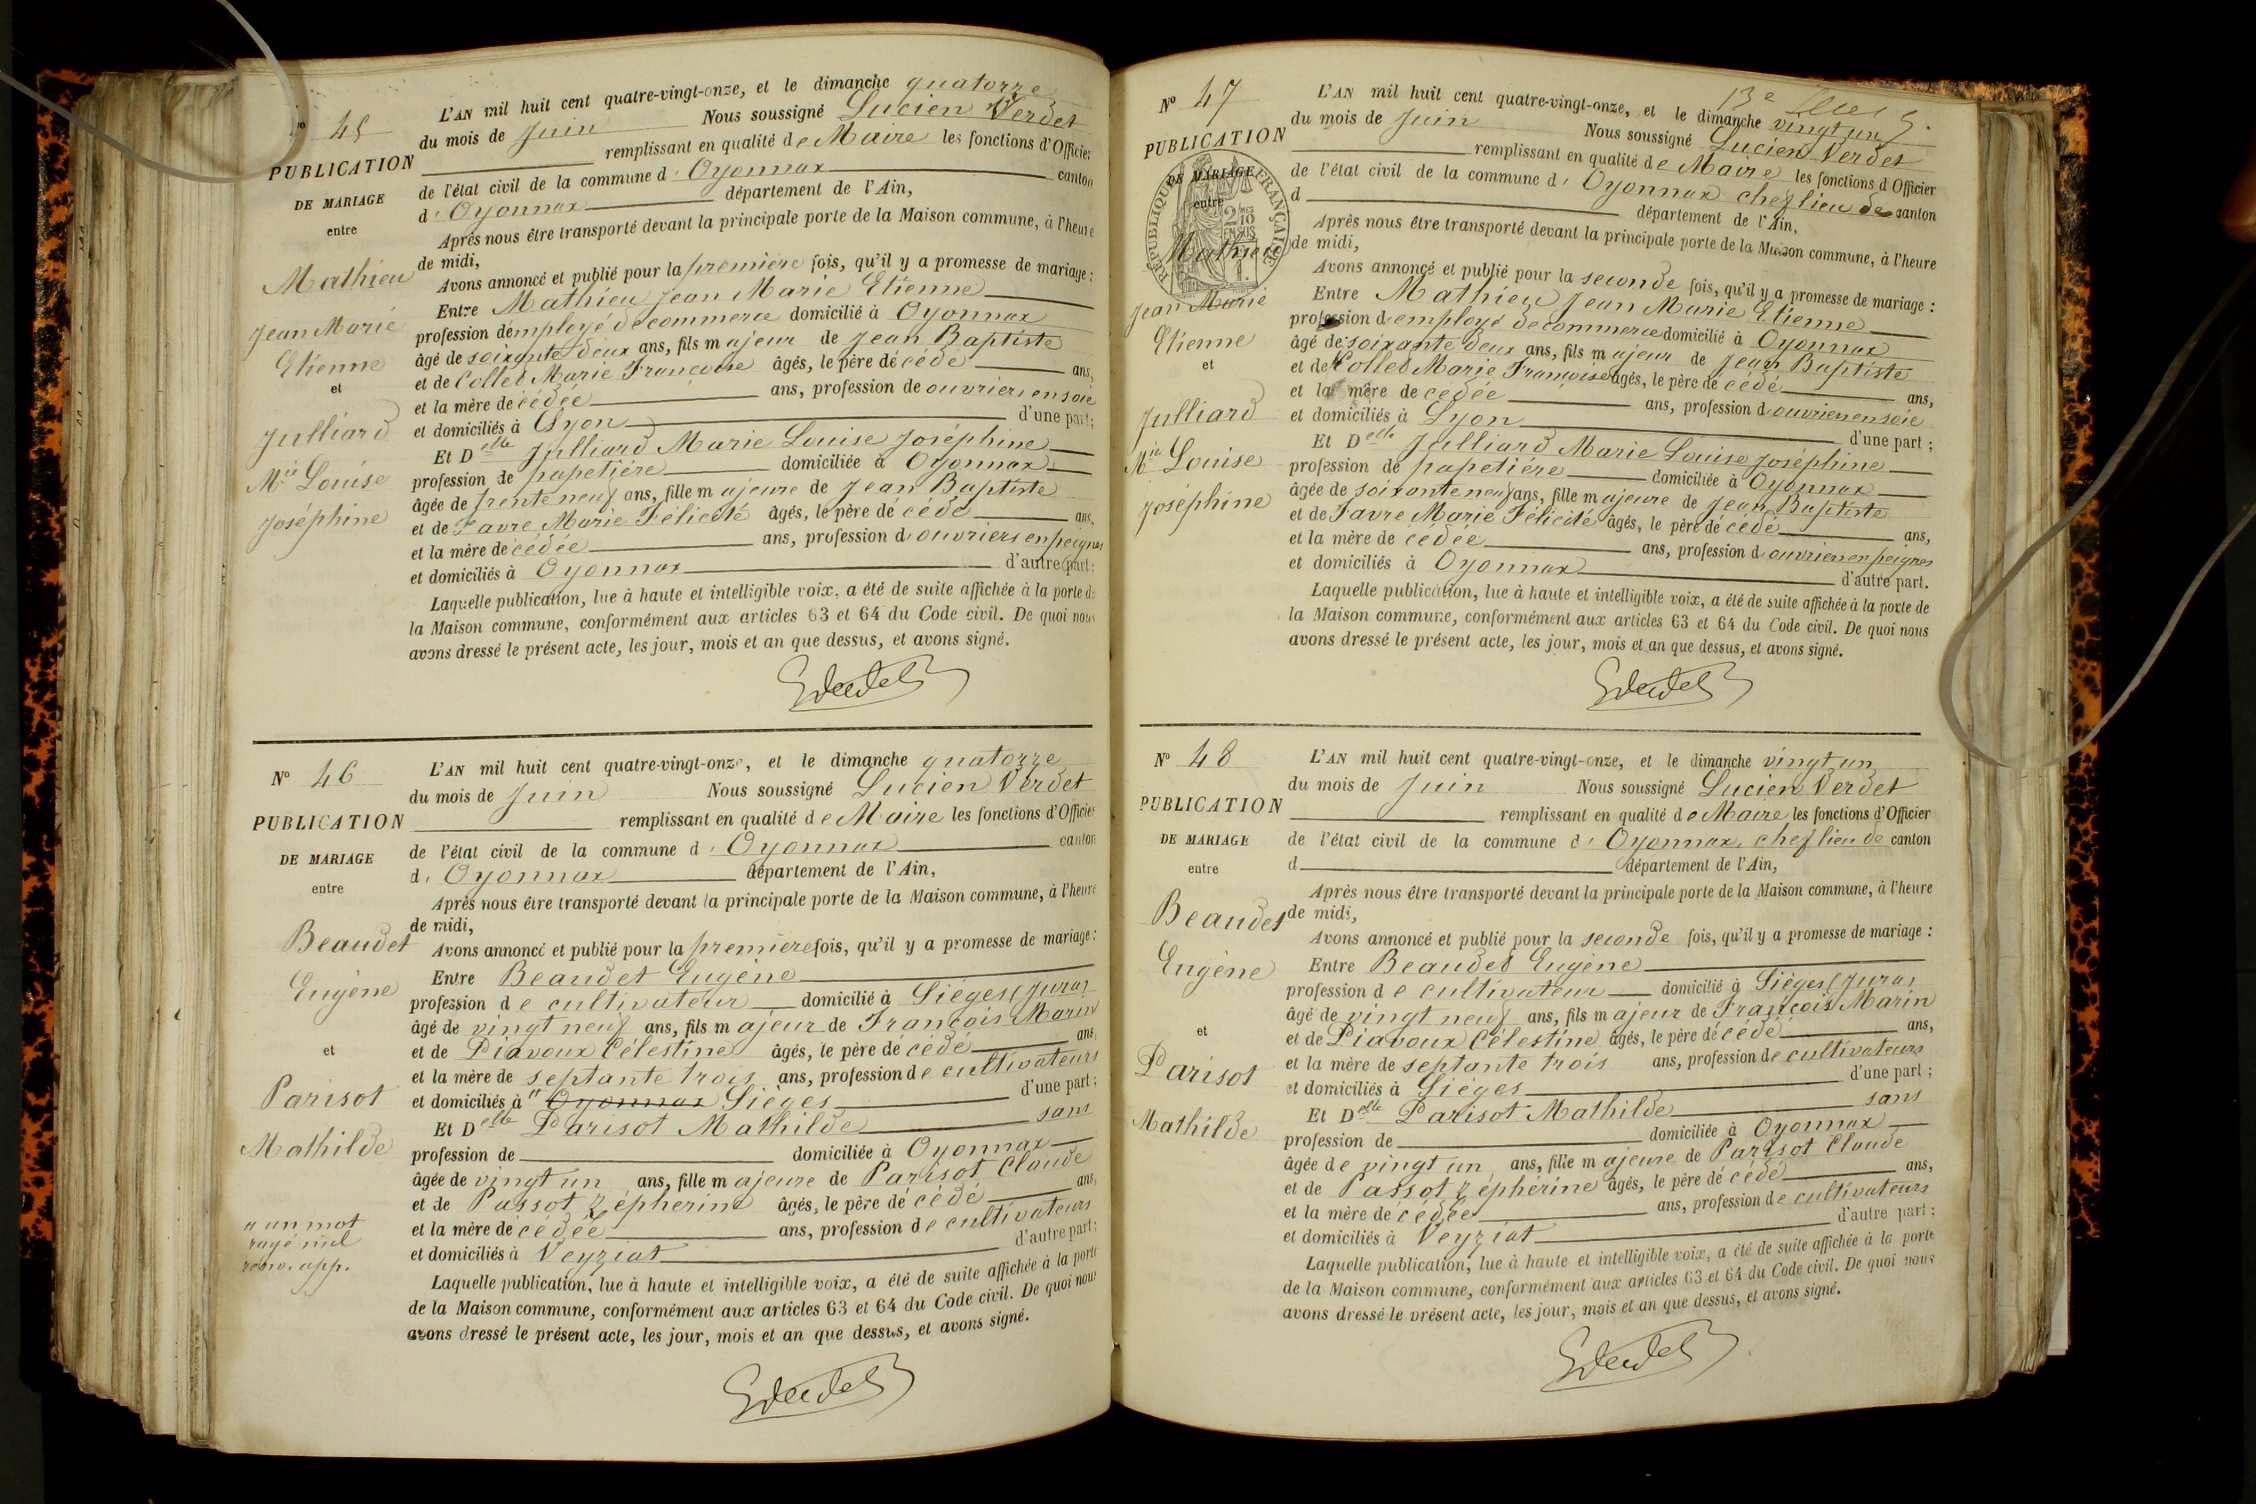 N° 45
PUBLICATION
DE MARIAGE
entre
Mathieu
Jean Marie
Etienne
et
Julliard
Mie Louise
Joséphine
L'AN mil huit cent quatre-vingt-onze, et le dimanche quatorze
du mois de Juin Nous soussigné Lucien Verdet
remplissant en qualité de Maire les fonctions d'Officier
de l'état civil de la commune d'Oyonnax canton
d'Oyonnax département de l'Ain,
Après nous être transporté devant la principale porte de la Maison commune, à l'heure
de midi,
Avons annoncé et publié pour la première fois, qu'il y a promesse de mariage :
Entre Mathieu Jean Marie Etienne
profession d'employé de commerce domicilié à Oyonnax
âgé de soixante deux ans, fils majeur de Jean Baptiste
et de Collet Marie Françoise âgés, le père décédé ans,
et la mère décédée ans, profession de ouvriers en soie
et domiciliés à Lyon d'une part ;
Et Delle Julliard Marie Louise Joséphine
profession de papetière domiciliée à Oyonnax
âgée de trente neuf ans, fille majeure de Jean Baptiste
et de Favre Marie Félicité âgés, le père décédé ans,
et la mère décédée ans, profession d'ouvriers en peignes
et domiciliés à Oyonnax d'autre part ;
Laquelle publication, lue à haute et intelligible voix, a été de suite affichée à la porte de
la Maison commune, conformément aux articles 63 et 64 du Code civil. De quoi nous
avons dressé le présent acte, les jour, mois et an que dessus, et avons signé.
N° 46
PUBLICATION
DE MARIAGE
entre
Beaudet
Eugène
et
Parisot
Mathilde
" un mot
rayé nul
renv. app.
L'AN mil huit cent quatre-vingt-onze, et le dimanche quatorze
du mois de Juin Nous soussigné Lucien Verdet
remplissant en qualité de Maire les fonctions d'Officier
de l'état civil de la commune d'Oyonnax canton
d'Oyonnax département de l'Ain,
Après nous être transporté devant la principale porte de la Maison commune, à l'heure
de midi,
Avons annoncé et publié pour la première fois, qu'il y a promesse de mariage :
Entre Beaudet Eugène
profession de cultivateur domicilié à Sièges (Jura)
âgé de vingt neuf ans, fils majeur de François Marin
et de Piavoux Célestine âgés, le père décédé ans,
et la mère de septante trois ans, profession de cultivateurs
et domiciliés à " Oyonnax Sièges d'une part ;
Et Delle Parisot Mathilde sans
profession de domiciliée à Oyonnax
âgée de vingt un ans, fille majeure de Parisot Claude
et de Passot Zépherine âgés, le père décédé ans,
et la mère décédée ans, profession de cultivateurs
et domiciliés à Veyziat d'autre part ;
Laquelle publication, lue à haute et intelligible voix, a été de suite affichée à la porte
de la Maison commune, conformément aux articles 63 et 64 du Code civil. De quoi nous
avons dressé le présent acte, les jour, mois et an que dessus, et avons signé.
13e
N° 47
PUBLICATION
DE MARIAGE
entre
RÉPUBLIQUE FRANÇAISE
2/10 EN SUS
Mathieu
Jean Marie
Etienne
et
Julliard
Mie Louise
Joséphine
L'AN mil huit cent quatre-vingt-onze, et le dimanche vingt un
du mois de Juin Nous soussigné Lucien Verdet
remplissant en qualité de Maire les fonctions d'Officier
de l'état civil de la commune d'Oyonnax chef lieu de canton
d département de l'Ain,
Après nous être transporté devant la principale porte de la Maison commune, à l'heure
de midi,
Avons annoncé et publié pour la seconde fois, qu'il y a promesse de mariage :
Entre Mathieu Jean Marie Etienne
profession d'employé de commerce domicilié à Oyonnax
âgé de soixante deux ans, fils majeur de Jean Baptiste
et de Collet Marie Françoise âgés, le père décédé ans,
et la mère décédée ans, profession d'ouvriers en soie
et domiciliés à Lyon d'une part ;
Et Delle Julliard Marie Louise Joséphine
profession de papetière domiciliée à Oyonnax
âgée de soixante neuf ans, fille majeure de Jean Baptiste
et de Favre Marie Félicité âgés, le père décédé ans,
et la mère décédée ans, profession d'ouvriers en peignes
et domiciliés à Oyonnax d'autre part.
Laquelle publication, lue à haute et intelligible voix, a été de suite affichée à la porte de
la Maison commune, conformément aux articles 63 et 64 du Code civil. De quoi nous
avons dressé le présent acte, les jour, mois et an que dessus, et avons signé.
N° 48
PUBLICATION
DE MARIAGE
entre
Beaudet
Eugène
et
Parisot
Mathilde
L'AN mil huit cent quatre-vingt-onze, et le dimanche vingt un
du mois de Juin Nous soussigné Lucien Verdet
remplissant en qualité de Maire les fonctions d'Officier
de l'état civil de la commune d'Oyonnax, chef lieu de canton
d département de l'Ain,
Après nous être transporté devant la principale porte de la Maison commune, à l'heure
de midi,
Avons annoncé et publié pour la seconde fois, qu'il y a promesse de mariage :
Entre Beaudet Eugène
profession de cultivateur domicilié à Sièges (Jura)
âgé de vingt neuf ans, fils majeur de François Marin
et de Piavoux Célestine âgés, le père décédé ans,
et la mère de septante trois ans, profession de cultivateurs
et domiciliés à Sièges d'une part ;
Et Delle Parisot Mathilde sans
profession de domiciliée à Oyonnax
âgée de vingt un ans, fille majeure de Parisot Claude
et de Passot Zéphérine âgés, le père décédé ans,
et la mère décédée ans, profession de cultivateurs
et domiciliés à Veyziat d'autre part ;
Laquelle publication, lue à haute et intelligible voix, a été de suite affichée à la porte
de la Maison commune, conformément aux articles 63 et 64 du Code civil. De quoi nous
avons dressé le présent acte, les jour, mois et an que dessus, et avons signé.